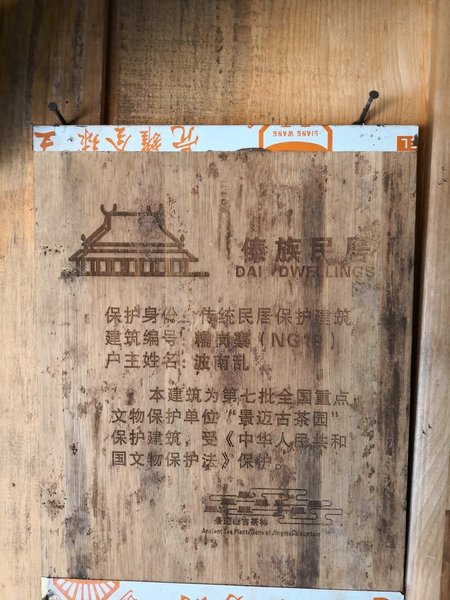 -LIANG WANG
傣族民居
DAI DWELLINGS
保护身份：传统民居保护建筑
建筑编号：糯岗寨（NG19）
户主姓名：波南乱
本建筑为第七批全国重点
文物保护单位“景迈古茶园”
保护建筑，受《中华人民共和
国文物保护法》保护。
景迈山古茶林
Ancient Tea Plantations of Jingmai Mountain